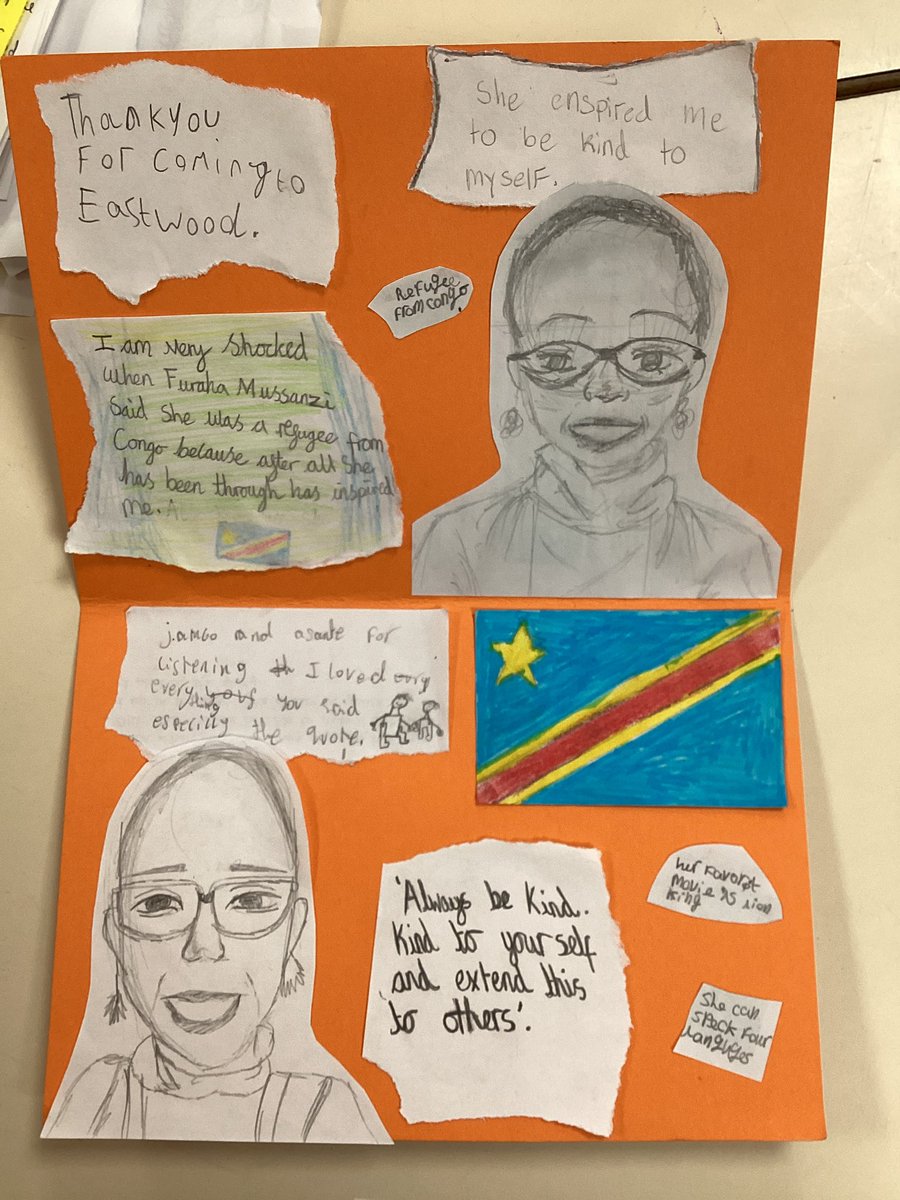 Thankyou
For coming to
Eastwood.
She enspired me
to be kind to
myself.
Refugee
from congo.
I am very Shocked
when Furaha Mussanzi
said She was a refugee from
Congo because after all She
has been through has inspired
me.
jambo and asante for
listening I loved
every thing you said
especilly the quote.
'Always be kind.
Kind to yourself
and extend this
to others'.
her favorst
Movie is lion
king
She can
speck four
languges